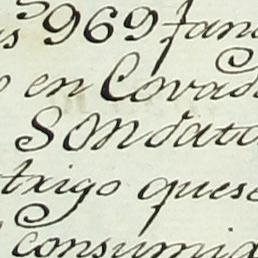 s 969 fan
en Covad
son data
trigo quese
consumid